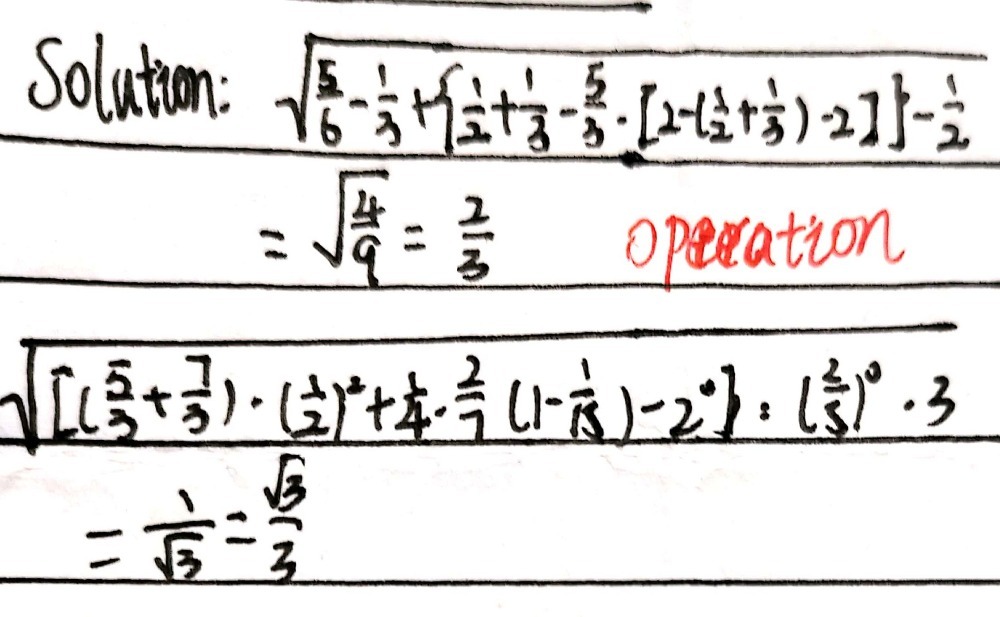 Solution: √(5/6 - 1/3 + {1/2 + 1/3 - 5/3 · [2 - (1/2 + 1/3) - 2]} - 1/2)
= √(4/9) = 2/3 operation
√([(5/3 + 7/3) · (1/2)² + 1/4 · 2/7 (1 - 1/15) - 2⁰] : (2/5)⁰ · 3)
= 1/√3 = √3/3